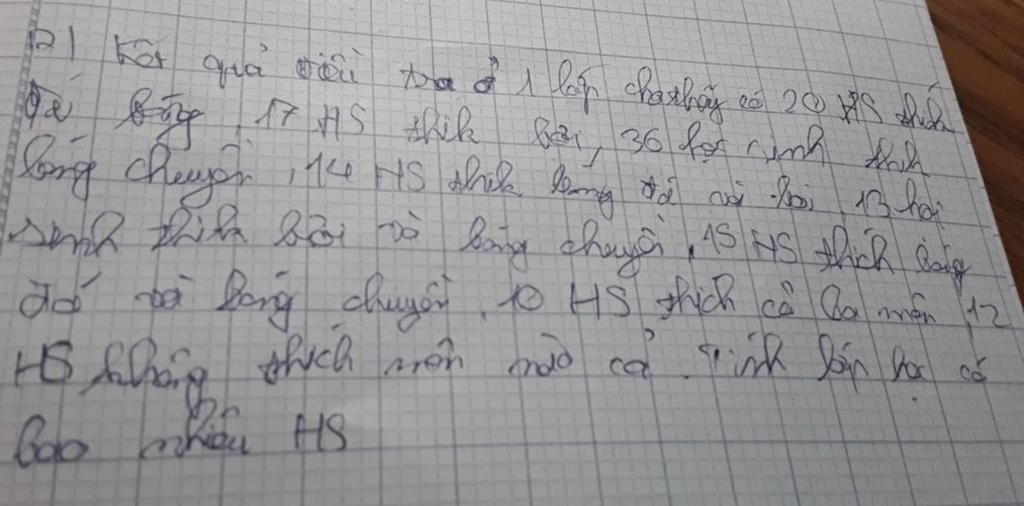 12) Kết quả điều tra ở 1 lớp cho thấy có 20 HS thích
đá bóng, 17 HS thik bơi, 36 học sinh thik
bóng chuyền, 14 HS thik bóng đá với bơi, 13 học
sinh thik bơi và bóng chuyền, 15 HS thích bóng
đá và bóng chuyền. 10 HS thích cả ba môn, 12
HS không thích môn nào cả. Tính lớp học có
bao nhiêu HS